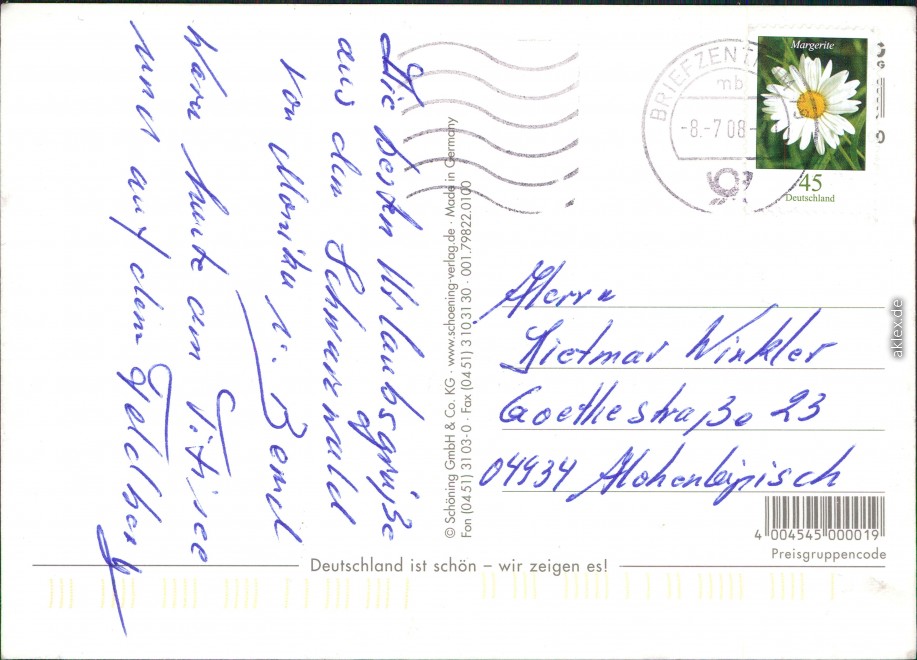 Die besten Urlaubsgrüße
aus dem Schwarzwald
von Monika u. Bernd
Waren heute am Titisee
und auf dem Feldberg
© Schöning GmbH & Co. KG · www.schoening-verlag.de · Made in Germany
Fon (04 51) 31 03-0 · Fax (04 51) 3 10 31 30 · 001.79822.0100
BRIEFZENT
mb
-8.-7 08-
Margerite
45
Deutschland
Herrn
Dietmar Winkler
Goethestraße 23
04934 Hohenleipisch
4 004545 000019
Preisgruppencode
Deutschland ist schön – wir zeigen es!
aklex.de